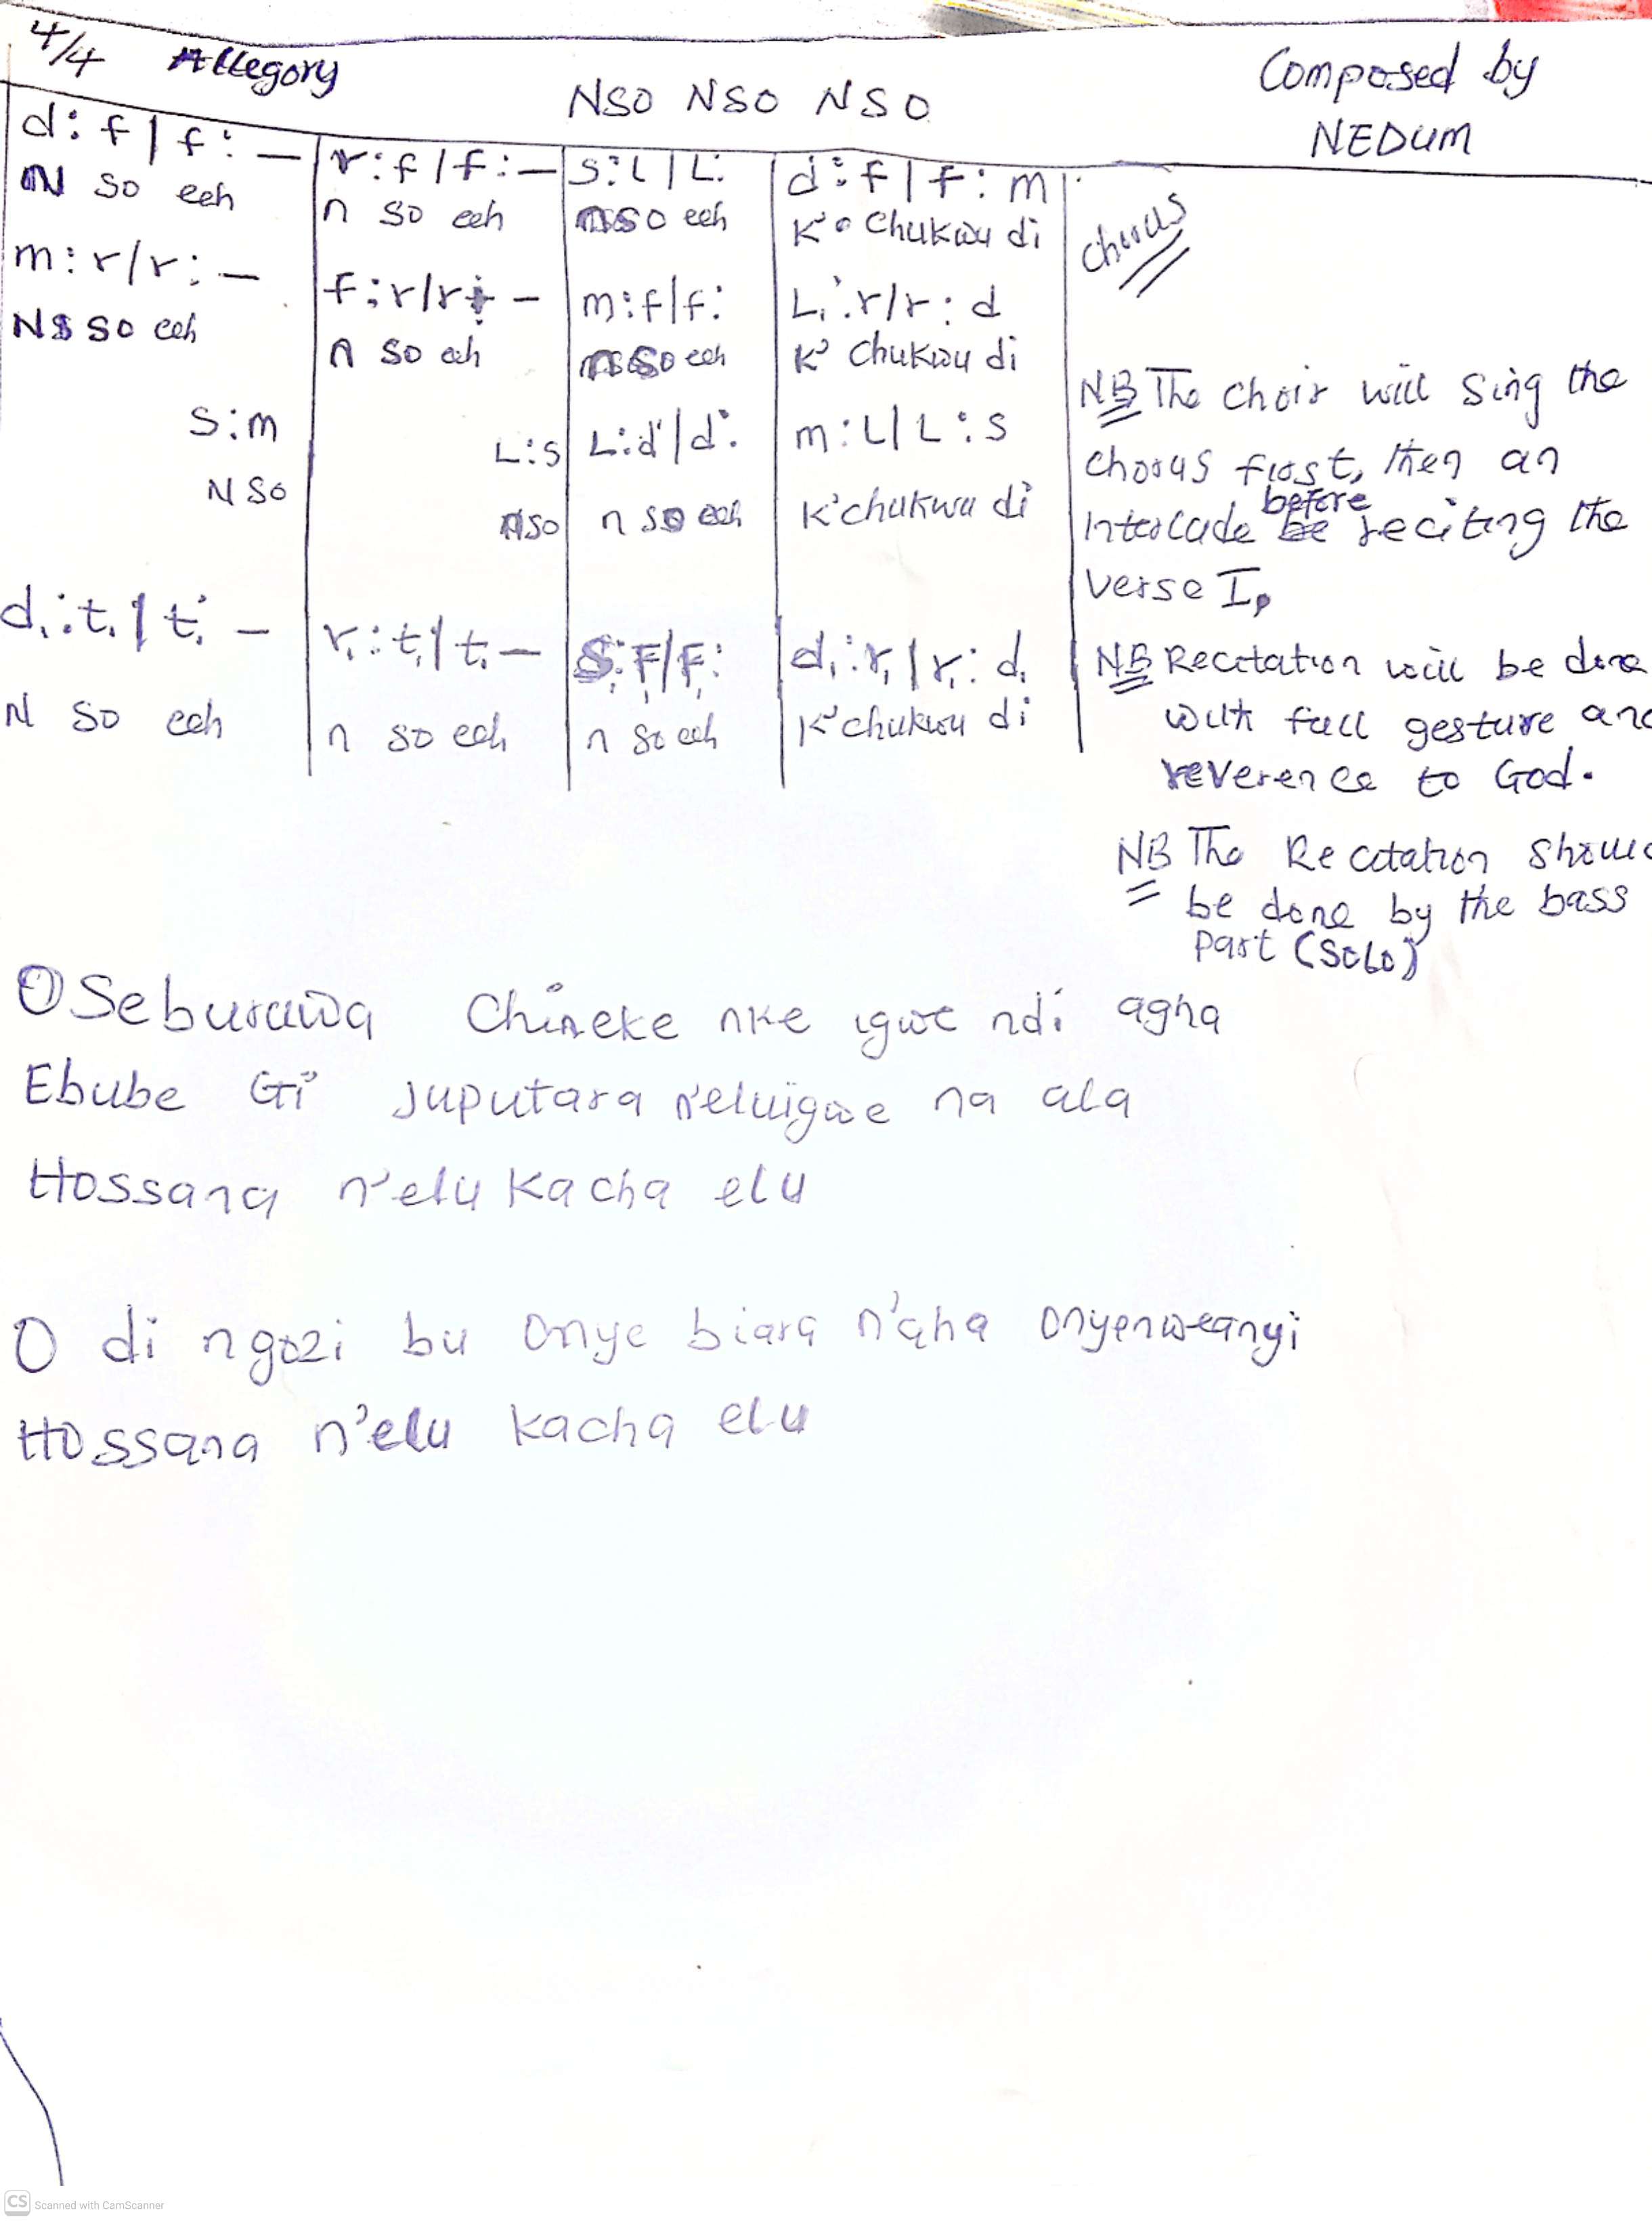 4/4 Allegory
NSO NSO NSO
Composed by
NEDUM
d:f|f:— | r:f/f:— | s:L|L: | d:f|f:m
N so eeh | n so eeh | nso eeh | K' Chukwu di
m:r/r:— | f:r/r:— | m:f/f: | L,:r/r:d
NS so eeh | n so eeh | nso eeh | K' Chukwu di
s:m | L:s | L:d'|d': | m:L|L:s
N so | nso | n so eeh | K'chukwu di
d,:t,|t, — | r,:t,|t, — | S,:F,/F,: | d,:r,|r,:d,
N so eeh | n so eeh | n so eeh | K'chukwu di
chorus
NB The choir will sing the
chorus first, then an
Interlude before reciting the
verse I,
NB Recitation will be done
with full gesture and
reverence to God.
NB The Recitation should
be done by the bass
Part (Solo)
OSeburuwa Chineke nke igwe ndi agha
Ebube Gi juputara n'eluigwe na ala
Hossana n'elu kacha elu
O di ngozi bu onye biara n'aha onyenweanyi
Hossana n'elu kacha elu
CS Scanned with CamScanner